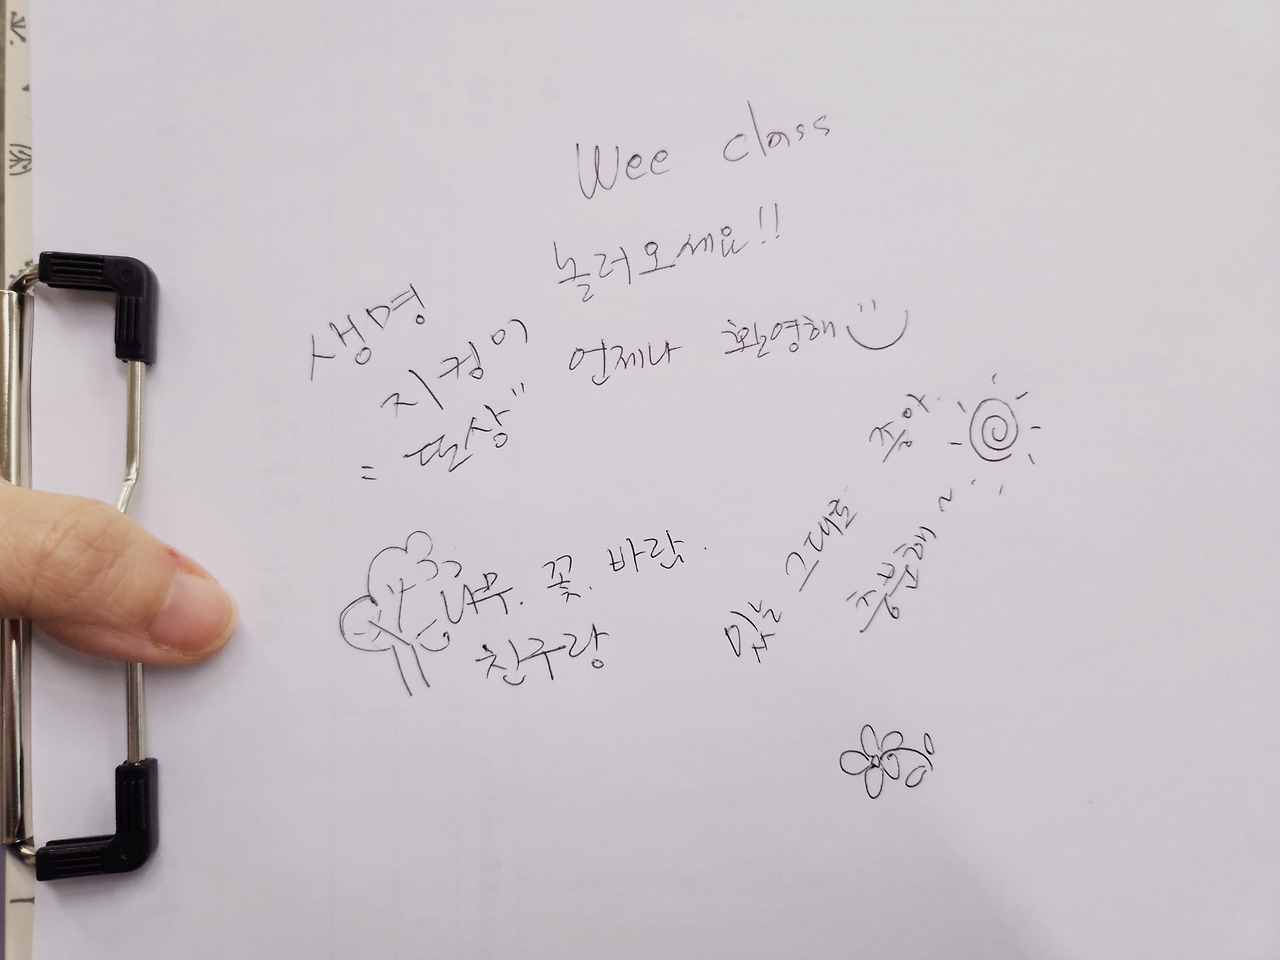 Wee class
놀러오세요!!
언제나 환영해
생명
지킴이
= 뜨상"
나무. 꽃. 바람.
친구랑
있는 그대로 좋아.
충분해~